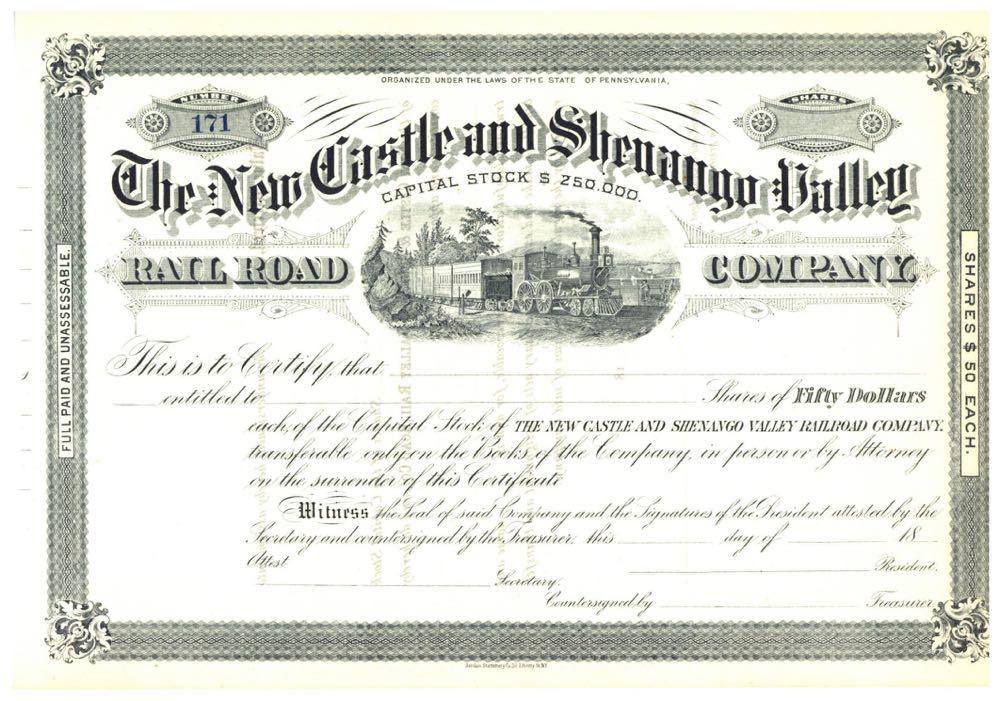 ORGANIZED UNDER THE LAWS OF THE STATE OF PENNSYLVANIA,
NUMBER
171
SHARES
The New Castle and Shenango Valley
CAPITAL STOCK $ 250.000.
RAIL ROAD COMPANY.
FULL PAID AND UNASSESSABLE.
SHARES $ 50 EACH.
This is to Certify, that
entitled to Shares of Fifty Dollars
each, of the Capital Stock of THE NEW CASTLE AND SHENANGO VALLEY RAILROAD COMPANY.
transferable only on the Books of the Company, in person or by Attorney
on the surrender of this Certificate
Witness the Seal of said Company and the Signatures of the President attested by the
Secretary and countersigned by the Treasurer, this day of 18
Attest President.
Secretary.
Countersigned by Treasurer.
Stationery Co. Liberty St. N.Y.